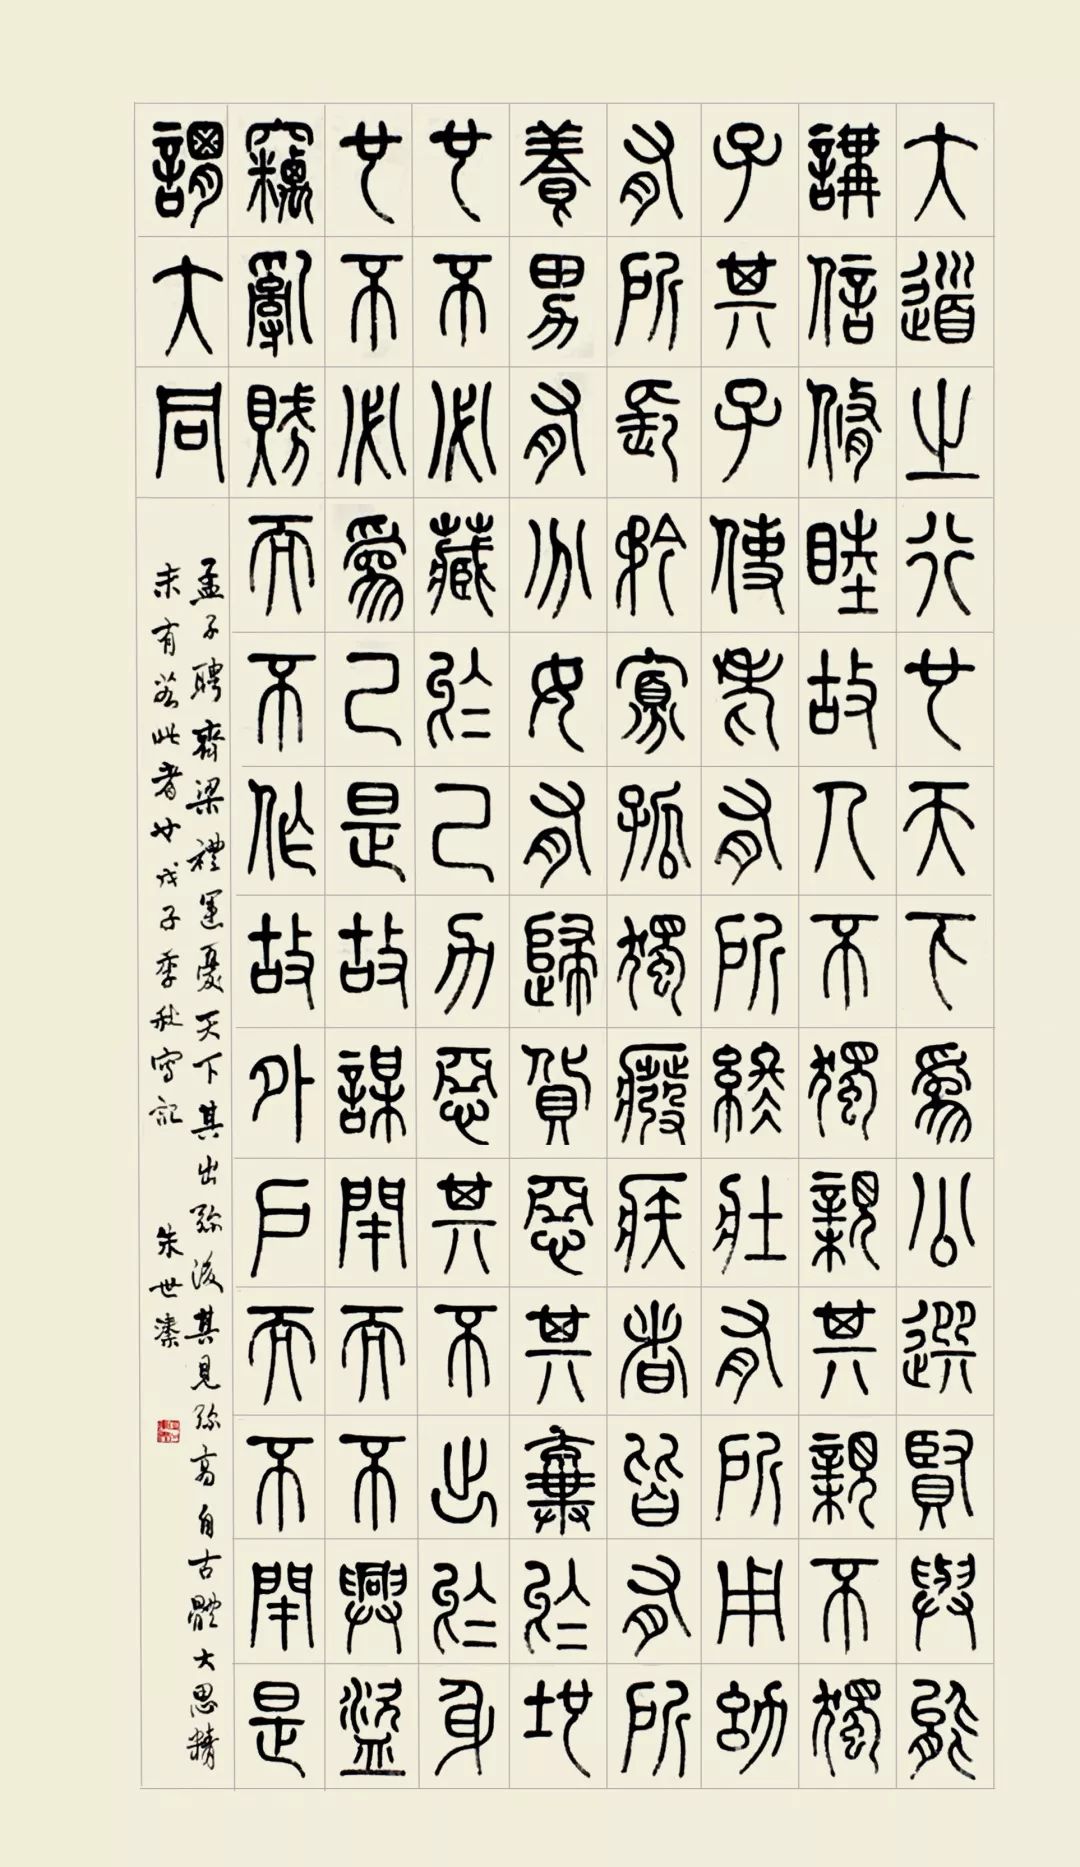 大道之行也天下爲公選賢與能
講信脩睦故人不獨親其親不獨
子其子使老有所終壯有所用幼
有所長矜寡孤獨廢疾者皆有所
養男有分女有歸貨惡其棄於地
也不必藏於己力惡其不出於身
也不必爲己是故謀閉而不興盜
竊亂賊而不作故外戶而不閉是
謂大同
孟子聘齊梁禮運憂天下其出弥後其見弥高自古體大思精
未有若此者也戊子季秋寫記 朱世溱